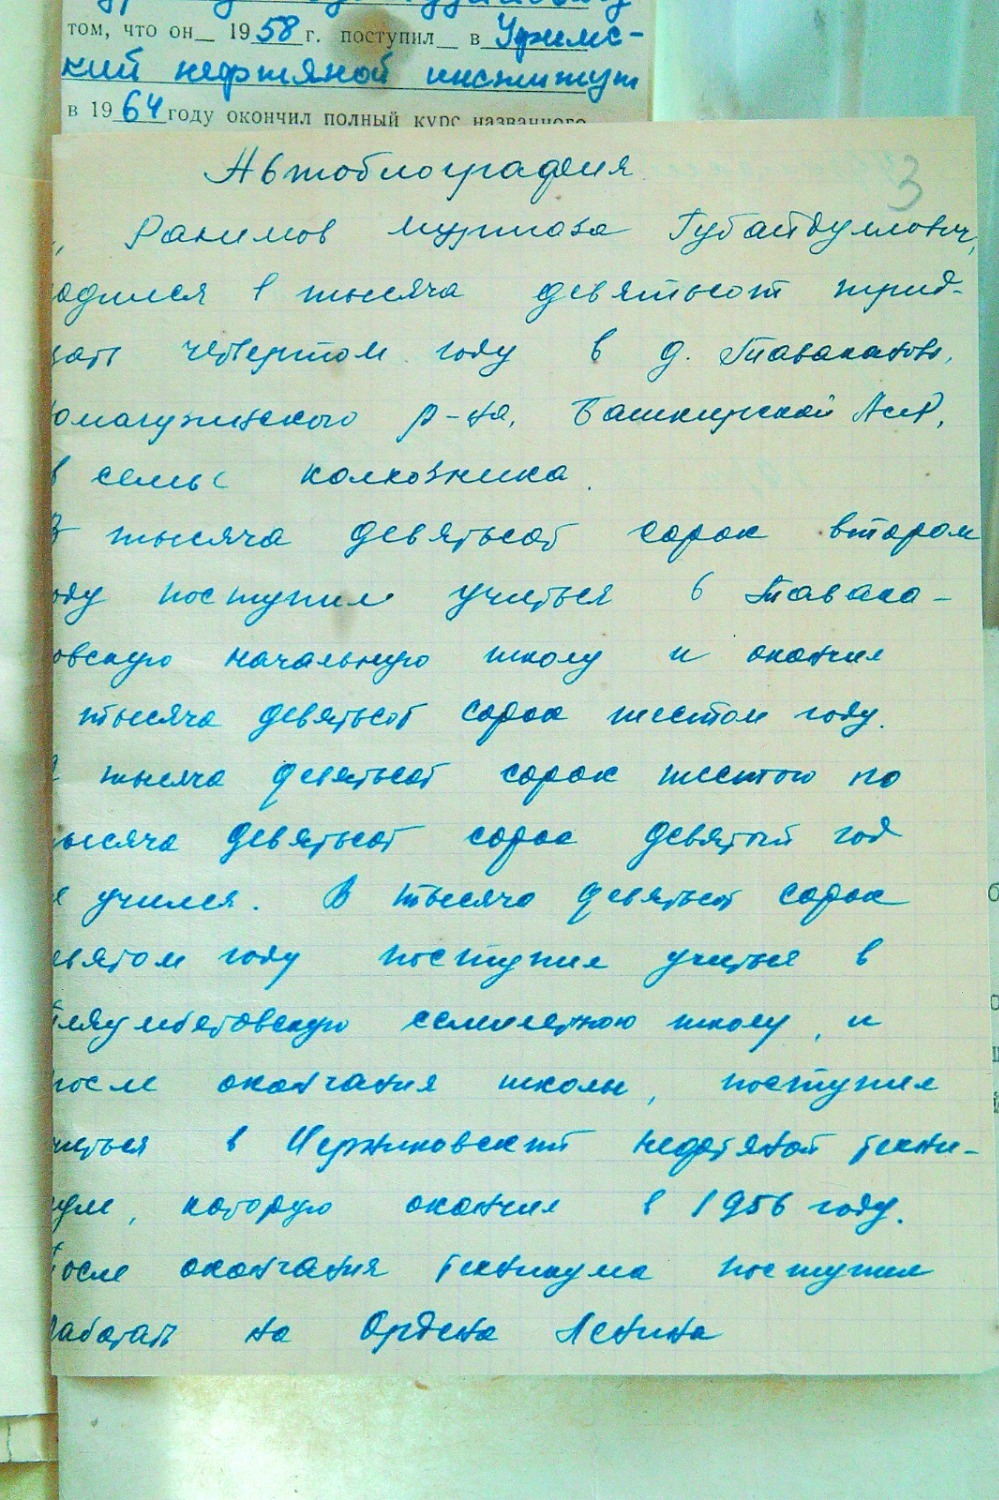 том, что он_ 1958 г. поступил_ в Уфимс-
кий нефтяной институт
в 1964 году окончил полный курс названного
Автобиография
3
Рахимов Муртаза Губайдуллович,
одился в тысяча девятьсот трид-
цать четвертом году в д. Таваканово,
юмагузинского р-на, Башкирской АССР,
в семье колхозника.
В тысяча девятьсот сорок втором
оду поступил учиться в Тавака-
овскую начальную школу и окончил
тысяча девятьсот сорок шестом году.
тысяча девятьсот сорок шестого по
ысяча девятьсот сорок девятый год
е учился. В тысяча девятьсот сорок
евятом году поступил учиться в
семилетнюю школу, и
после окончания школы, поступил
читься в Черниковский нефтяной техни-
кум, которую окончил в 1956 году.
После окончания техникума поступил
работать на Ордена Ленина